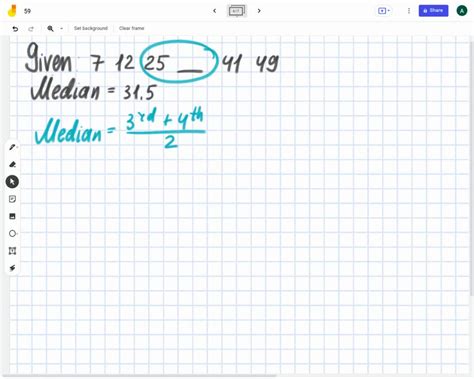 59
Share
A
Set background Clear frame
Given 7 12 25 __ 41 49
Median = 31.5
Median = 3rd + 4th
2